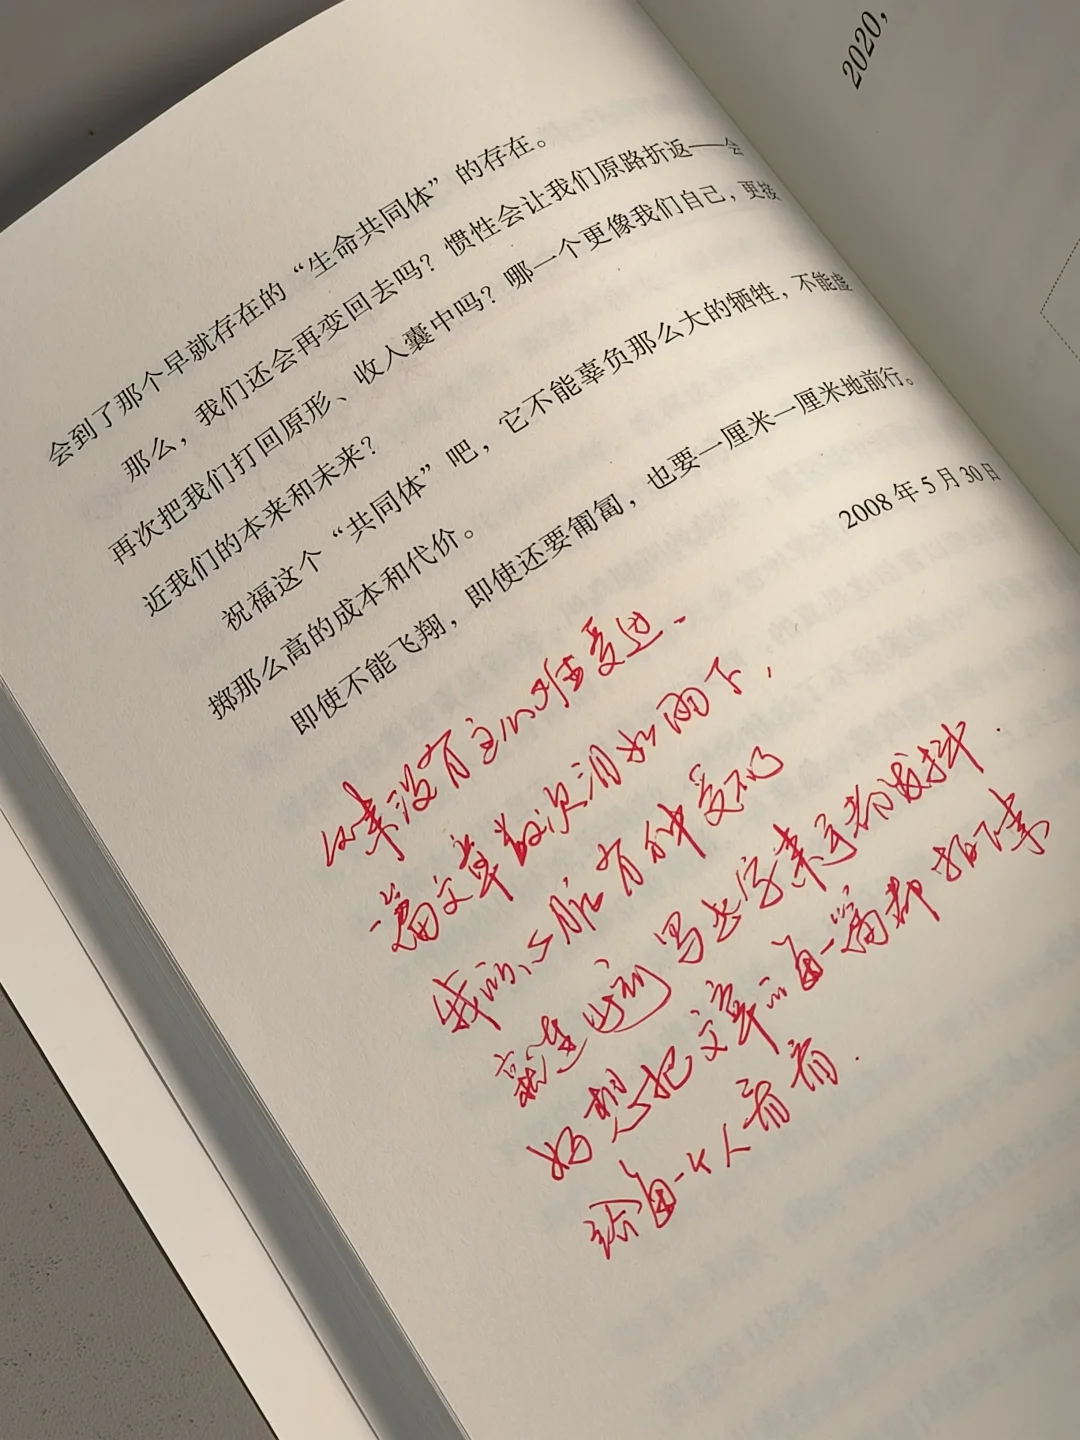 2020,
会到了那个早就存在的“生命共同体”的存在。
那么，我们还会再变回去吗？惯性会让我们原路折返——会
再次把我们打回原形、收入囊中吗？哪一个更像我们自己，更接
近我们的本来和未来？
祝福这个“共同体”吧，它不能辜负那么大的牺牲，不能虚
掷那么高的成本和代价。
即使不能飞翔，即使还要匍匐，也要一厘米一厘米地前行。
2008年5月30日
从来没有这么难受过、
一篇文章数次泪如雨下，
我的心脏有种受不了
就连此刻写出字来手都发抖.
好想把文章的每一篇都拍下来
给每一个人看看.